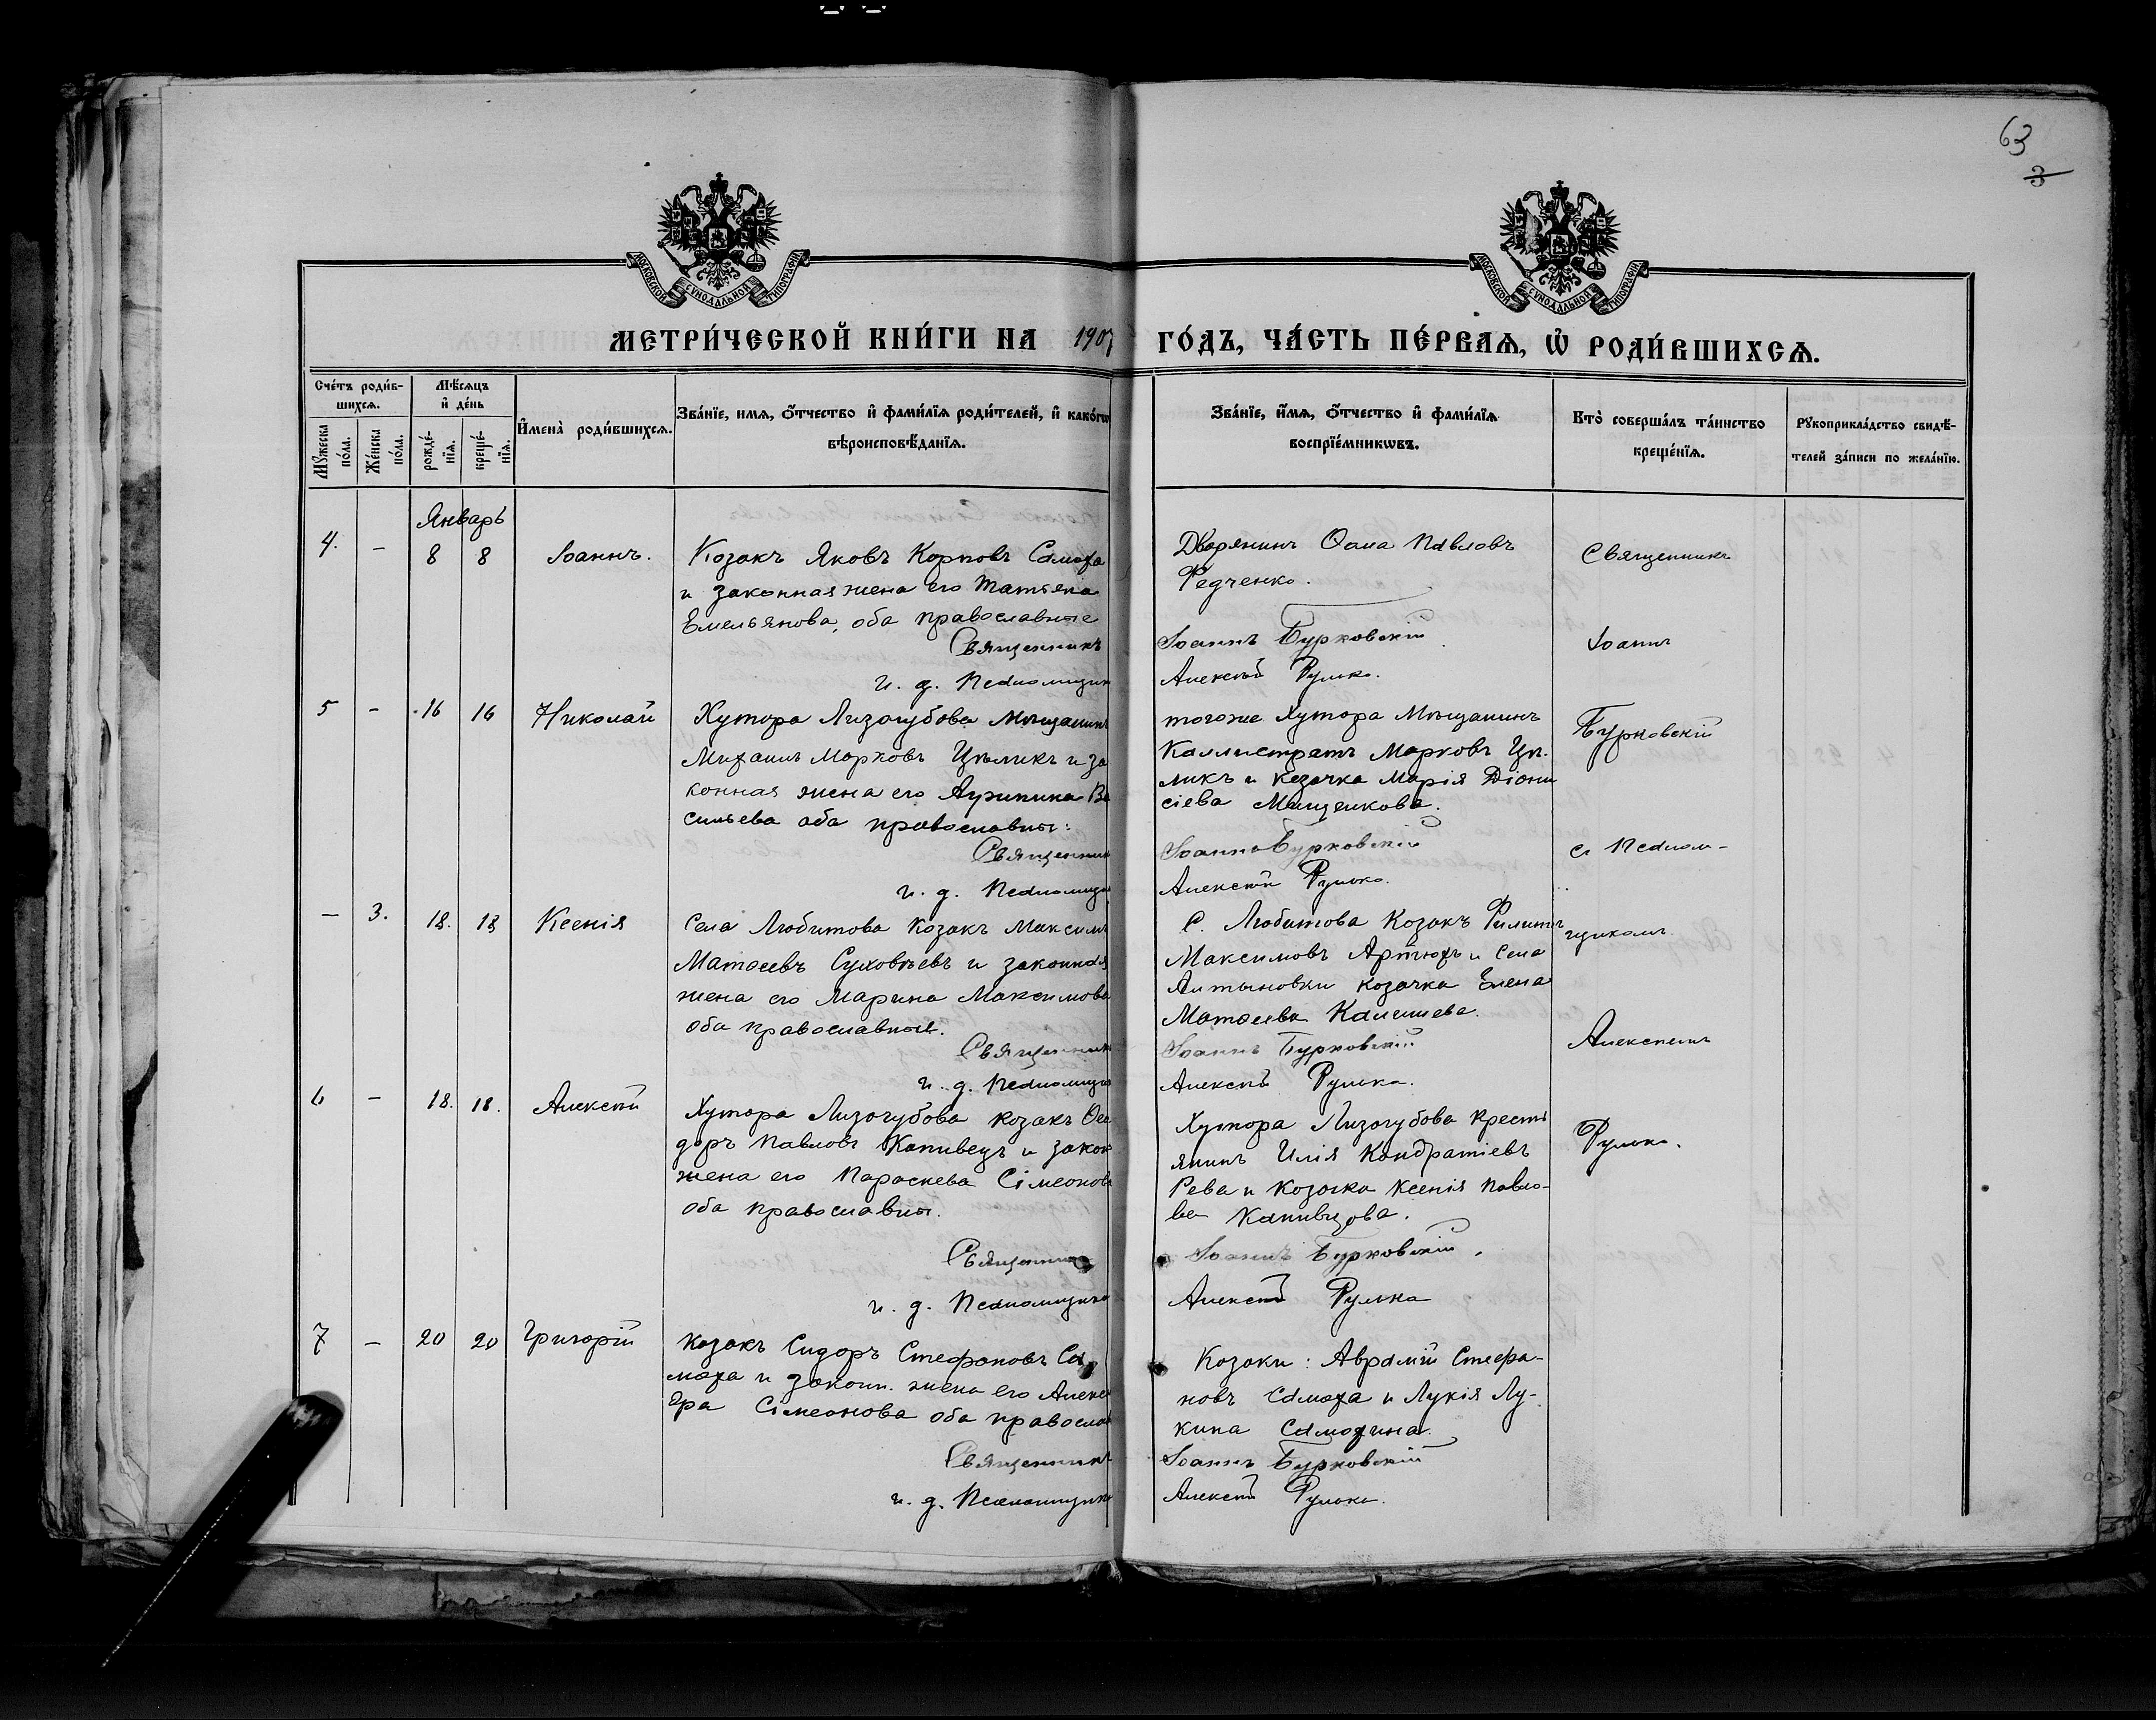 63
3
МОСКОВСКОЙ СУНОДАЛЬНОЙ ТИПОГРАФІИ
МОСКОВСКОЙ СУНОДАЛЬНОЙ ТИПОГРАФІИ
МЕТРИ́ЧЕСКОЙ КНИ́ГИ НА 1907 ГО́ДЪ, ЧА́СТЬ ПЕ́РВАѦ, Ѡ҆ РОДИ́ВШИХСѦ.
Сче́тъ роди́в-
шихсѧ.
Мꙋжеска по́ла.
Же́нска по́ла.
Мѣ́сѧцъ
и҆ де́нь
рожде́-
нїѧ.
креще́-
нїѧ.
И҆мена̀ роди́вшихсѧ.
Зва́нїе, имѧ, ѻ҆́тчество и҆ фами́лїѧ роди́телей, и҆ како́гѡ
вѣроисповѣ́данїѧ.
Зва́нїе, и҆́мѧ, ѻ҆́тчество и҆ фами́лїѧ
воспрїе́мникѡвъ.
Кто̀ соверша́лъ та́инство
креще́нїѧ.
Рꙋкоприкла́дство свидѣ́-
телей за́писи по жела́нїю.
Январь
4. - 8 8 Іоаннъ.
Козакъ Яковъ Карповъ Самоха
и законная жена его Татьяна
Емельянова, оба православные
Священникъ
и. д. Псаломщик
Дворянинъ Ѳома Павловъ
Редченко.
Іоаннъ Бурковскій
Алексѣй Рулько.
Священникъ
Іоаннъ
5 - 16 16 Николай
Хутора Лизогубова Мѣщанинъ
Михаилъ Марковъ Цѣликъ и за
конная жена его Агрипина Ва
сильева оба православны:
Священник
и. д. Псаломщик
тогоже Хутора Мѣщанинъ
Каллистратъ Марковъ Цѣ-
ликъ и козачка Марія Діони
сіева Мищенкова.
Іоаннъ Бурковскій
Алексѣй Рулько.
Бурковскій
с. Псалом-
- 3. 18. 18 Ксенія
Села Любитова Козакъ Максимъ
Матѳеевъ Суховѣевъ и законная
жена его Марина Максимова
оба православныя.
Священник
и. д. Псаломщик
С. Любитова Козакъ Филипъ
Максимовъ Артюхъ и села
Алтыновки козачка Елена
Матѳеева Калишева.
Іоаннъ Бурковскій
Алексѣй Рулько.
щикомъ
Алексѣемъ
6 - 18. 18. Алексѣй
Хутора Лизогубова козакъ Ѳео
доръ Павловъ Капивецъ и закон
жена его Параскева Сімеонова
оба православны.
Священник
и. д. Псаломщикъ
Хутора Лизогубова кресть
янинъ Илія Кондратіевъ
Рева и козачка Ксенія Павло-
ва Капивцова.
Іоаннъ Бурковскій.
Алексѣй Рулько
Рулько.
7 - 20 20 Григорій
Козакъ Сидоръ Стефановъ Са
моха и законн. жена его Алексан
дра Сімеонова оба православ
Священникъ
и. д. Псаломщикъ
Козаки: Аврамій Стефа-
новъ Самоха и Лукія Лу-
кина Самохина.
Іоаннъ Бурковскій
Алексѣй Рулько.